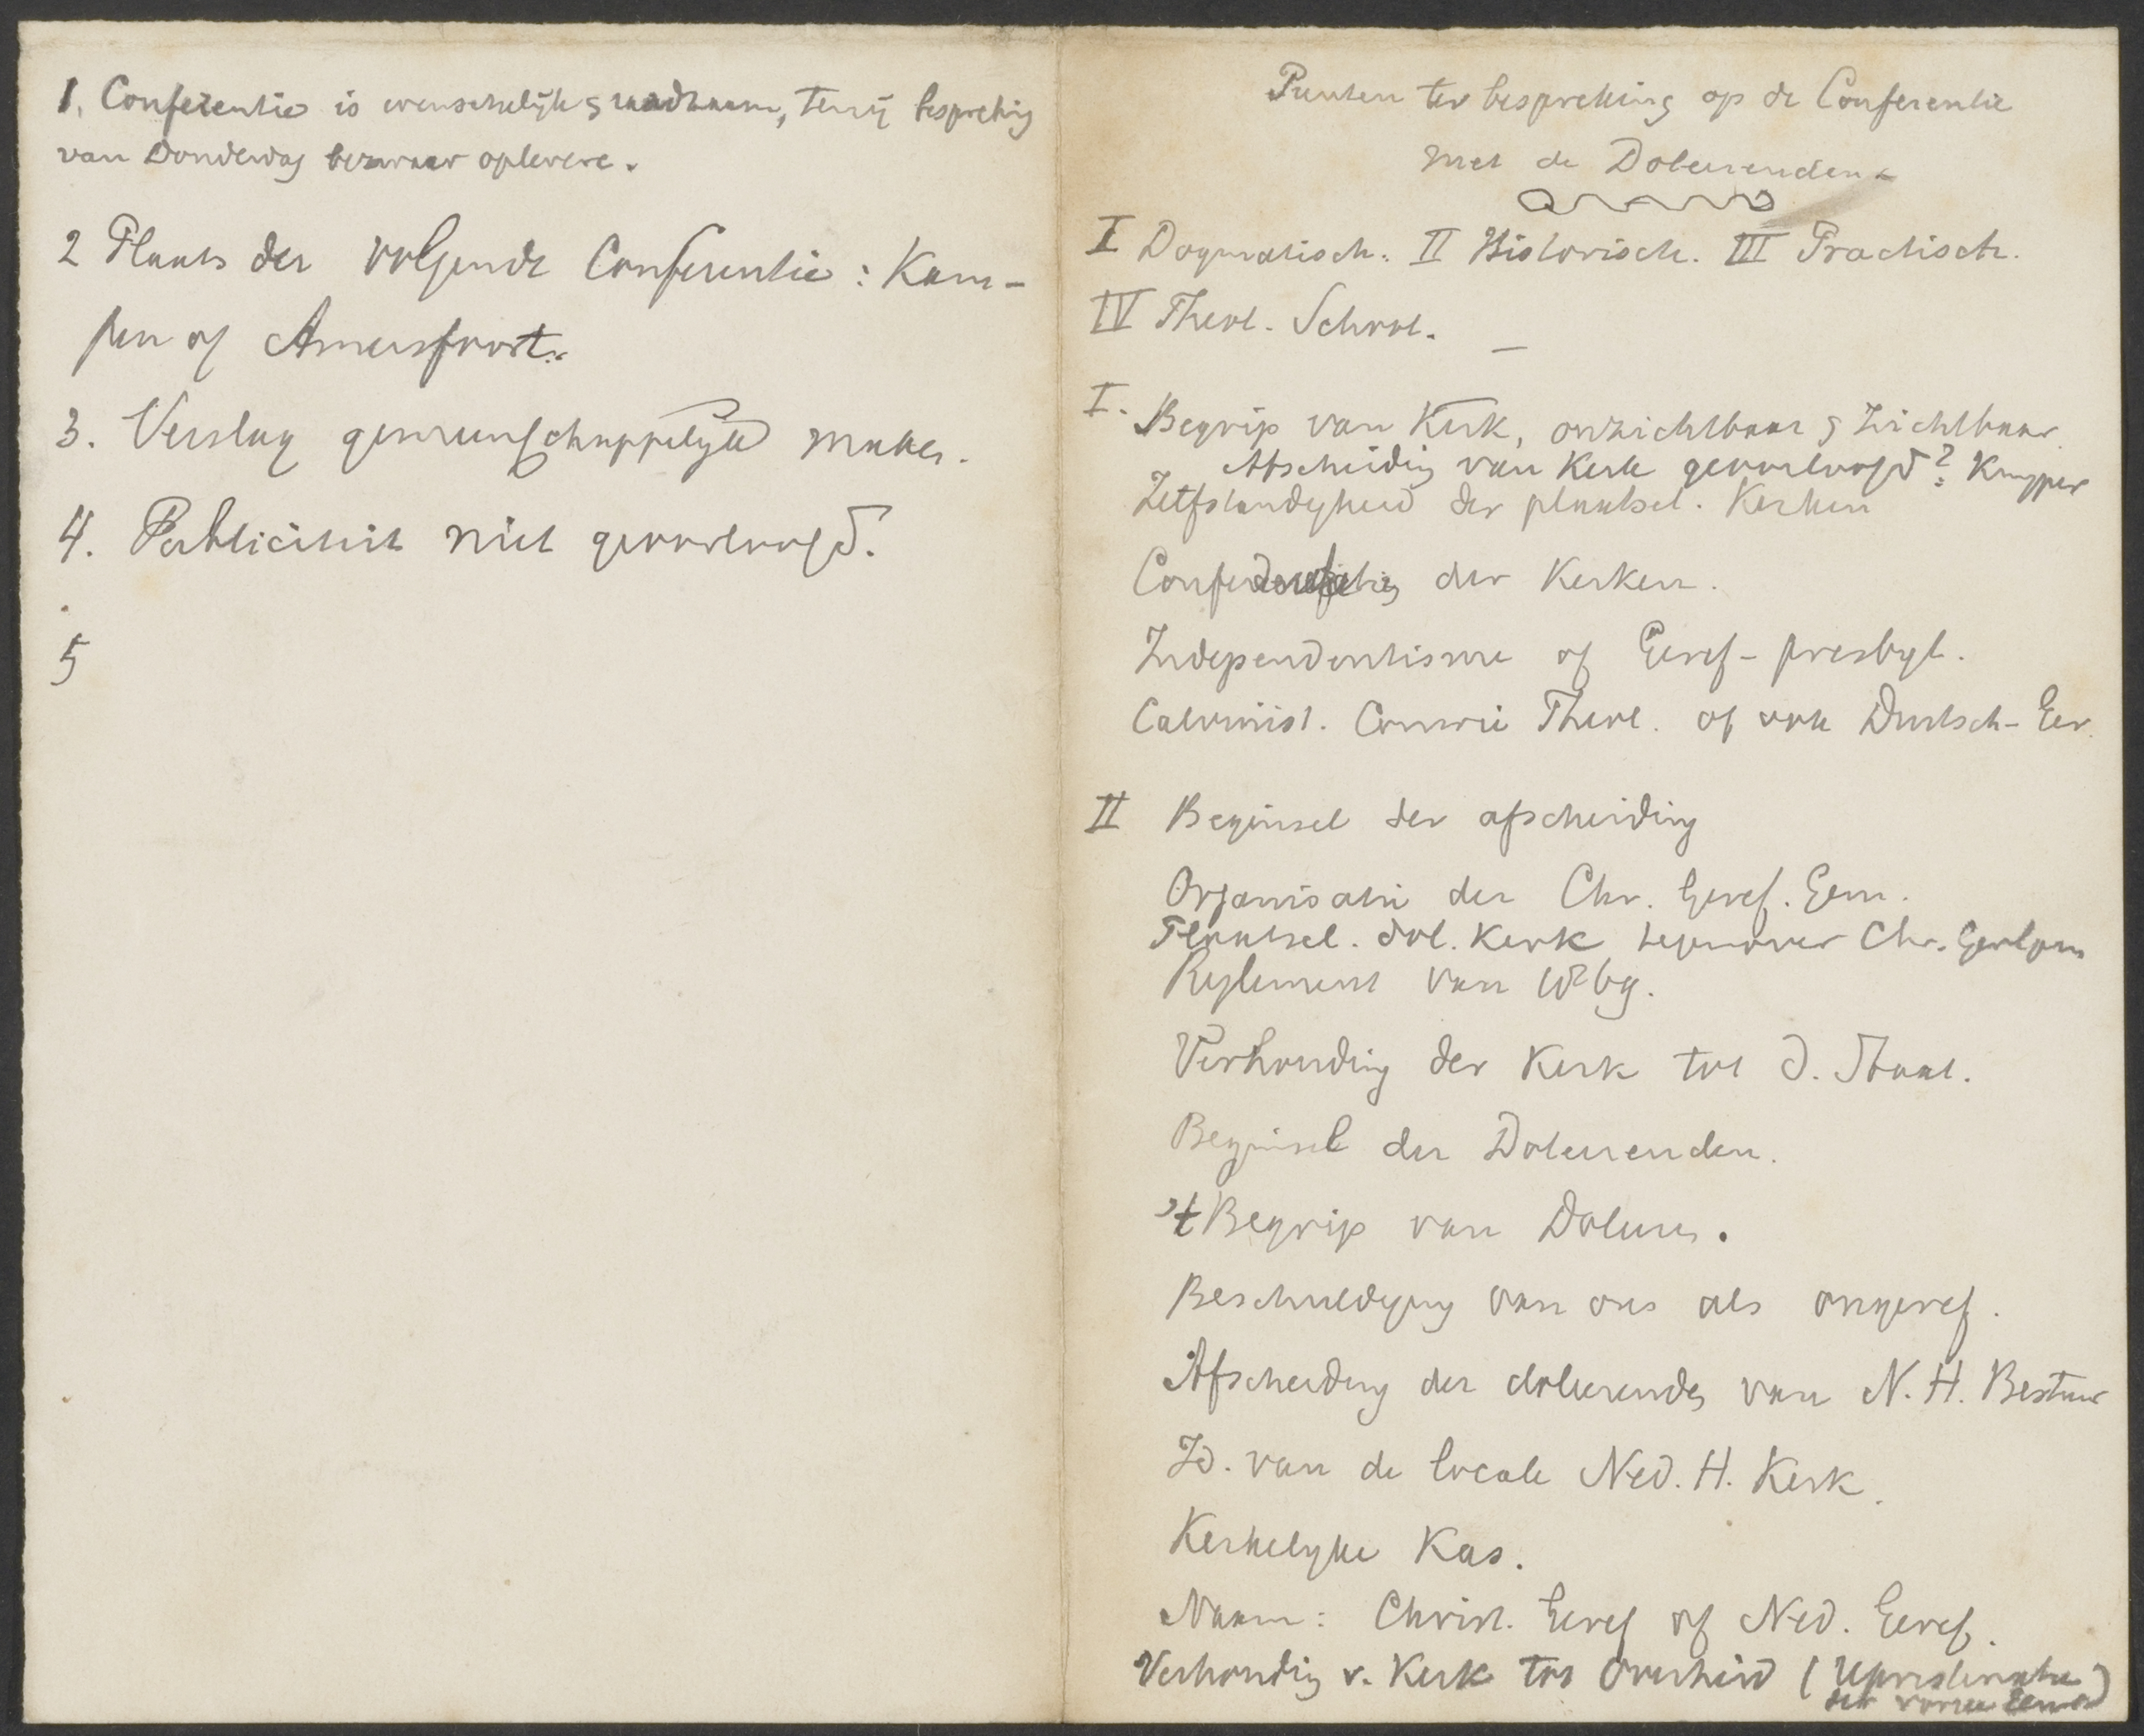 1. Conferentie is wenschelijk & raadzaam, tenzij bespreking
van Donderdag bezwaar oplevere.
2 Plaats der volgende Conferentie: Kam-
pen of Amersfoort.
3. Verslag gemeenschappelijk maken.
4. Publiciteit niet geoorloofd.
5
Punten ter bespreking op de Conferentie
met de Doleerenden.
I Dogmatisch. II Historisch. III Practisch.
IV Theol. School. —
I. Begrip van Kerk, onzichtbaar & zichtbaar.
Afscheiding van Kerk geoorloofd? Kuyper
Zelfstandigheid der plaatsel. Kerken
der Kerken.
Independentisme of Geref-presbyt.
Calvinist. Comrie Theol. of ook Duitsch-Ger.
II Beginsel der afscheiding
Organisatie der Chr. Geref. Gem.
Plaatsel. dol. Kerk tegenover Chr. Ger. Gem
Reglement van
Verhouding der Kerk tot d. Staat.
Beginsel der Doleerenden.
't Begrip van Doleeren.
Beschuldiging van ons als ongeref.
Afscheiding der doleerenden van N. H. Bestuur
Id. van de locale Ned. H. Kerk.
Kerkelijke Kas.
Naam: Christ. Geref of Ned. Geref.
Verhouding v. Kerk tot Overheid (